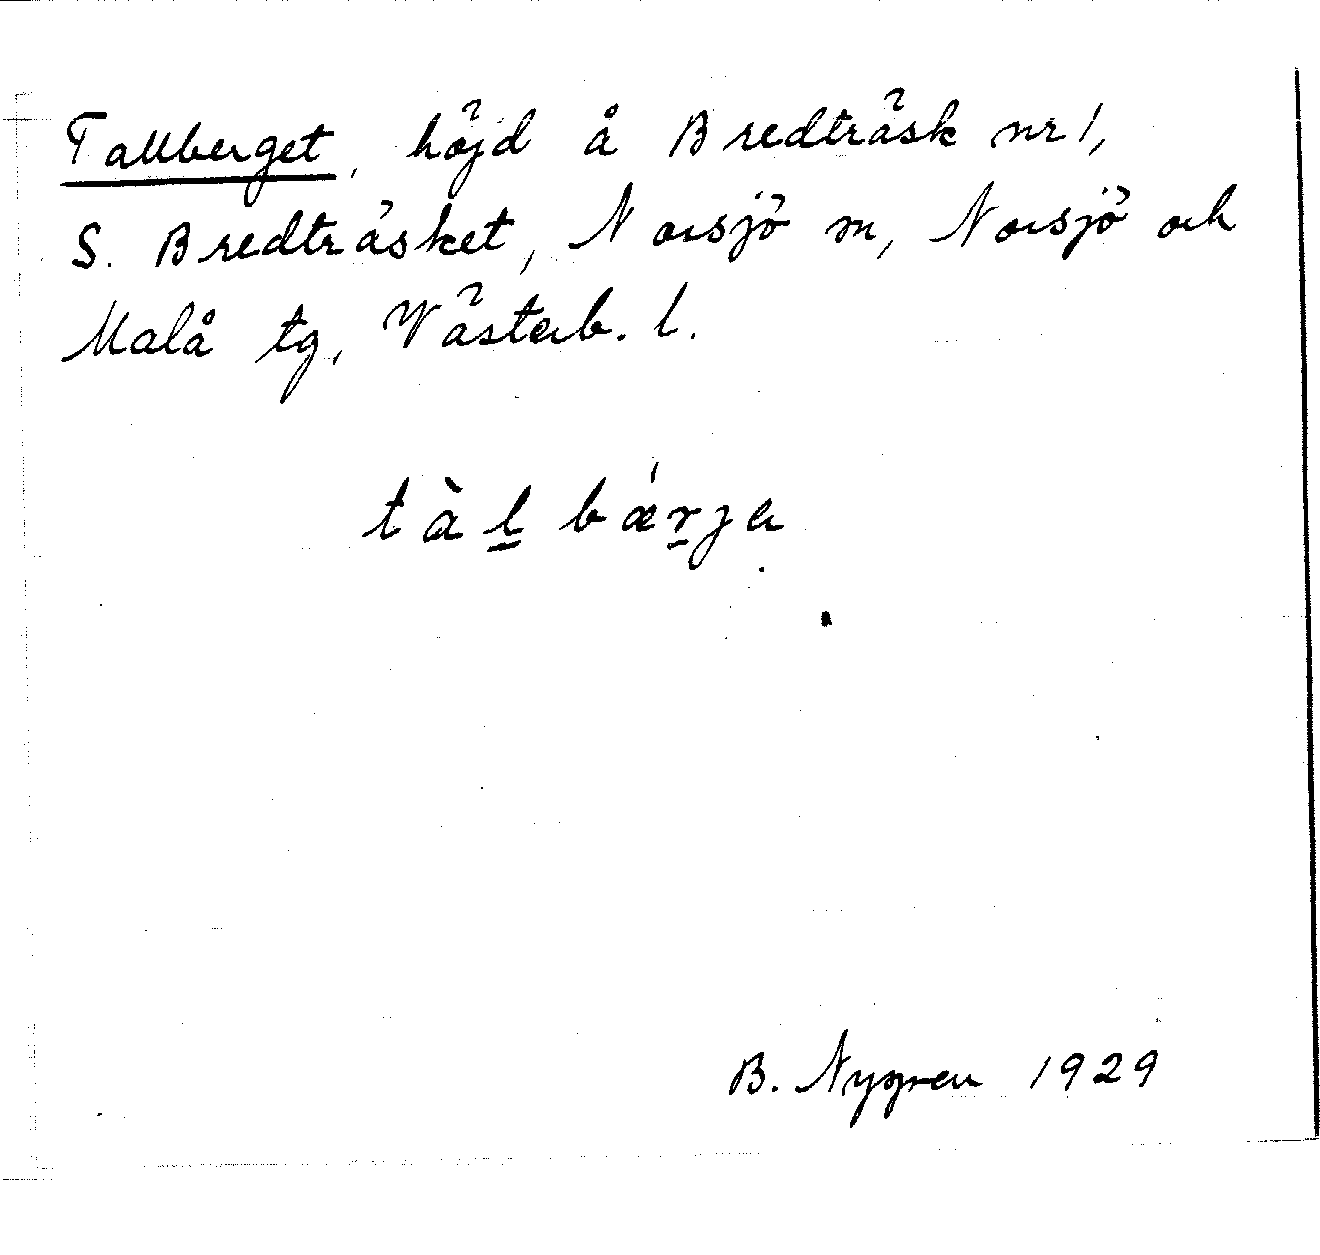 Tallberget, höjd å Bredträsk nr 1,
S. Bredträsket, Norsjö sn, Norsjö och
Malå tg, Västerb. l.
tàl̲ bǽr̲ja
B. Nygren 1929